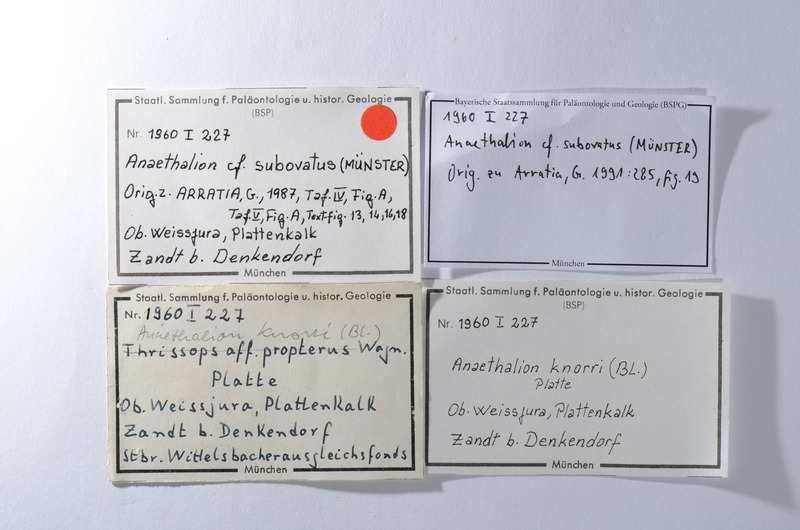 Staatl. Sammlung f. Paläontologie u. histor. Geologie
(BSP)
Nr. 1960 I 227
Anaethalion cf. subovatus (MÜNSTER)
Orig. z. ARRATIA, G., 1987, Taf. IV, Fig. A,
Taf. V, Fig. A, Textfig. 13, 14, 16, 18
Ob. Weissjura, Plattenkalk
Zandt b. Denkendorf
München
Bayerische Staatssammlung für Paläontologie und Geologie (BSPG)
1960 I 227
Anaethalion cf. subovatus (MÜNSTER)
Orig. zu Arratia, G. 1991: 285, fig. 19
München
Staatl. Sammlung f. Paläontologie u. histor. Geologie
Nr. 1960 I 227
Anaethalion knorri (BL.)
Thrissops aff. propterus Wagn.
Platte
Ob. Weissjura, Plattenkalk
Zandt b. Denkendorf
Stbr. Wittelsbacherausgleichsfonds
München
Staatl. Sammlung f. Paläontologie u. histor. Geologie
(BSP)
Nr. 1960 I 227
Anaethalion knorri (BL.)
Platte
Ob. Weissjura, Plattenkalk
Zandt b. Denkendorf
München